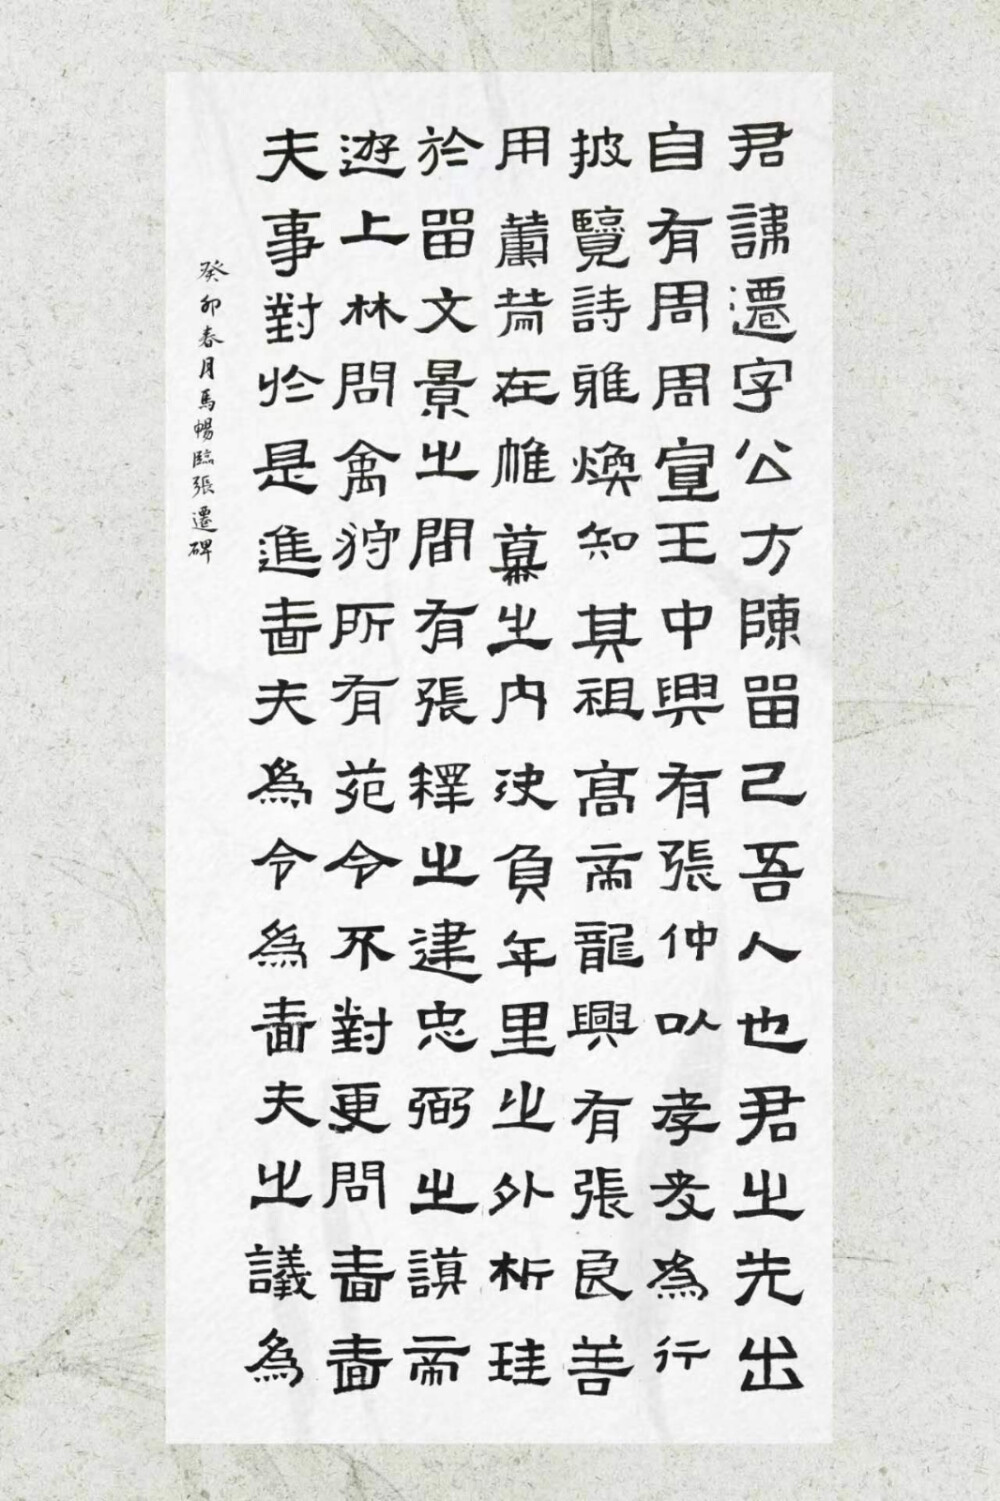 君諱遷字公方陳留己吾人也君之先出
自有周周宣王中興有張仲以孝友為行
披覽詩雅煥知其祖高帝龍興有張良善
用籌策在帷幕之內決負年里之外析珪
於留文景之間有張釋之建忠弼之謨帝
遊上林問禽狩所有苑令不對更問嗇嗇
夫事對於是進嗇夫為令為嗇夫之議為
癸卯春月馬暢臨張遷碑